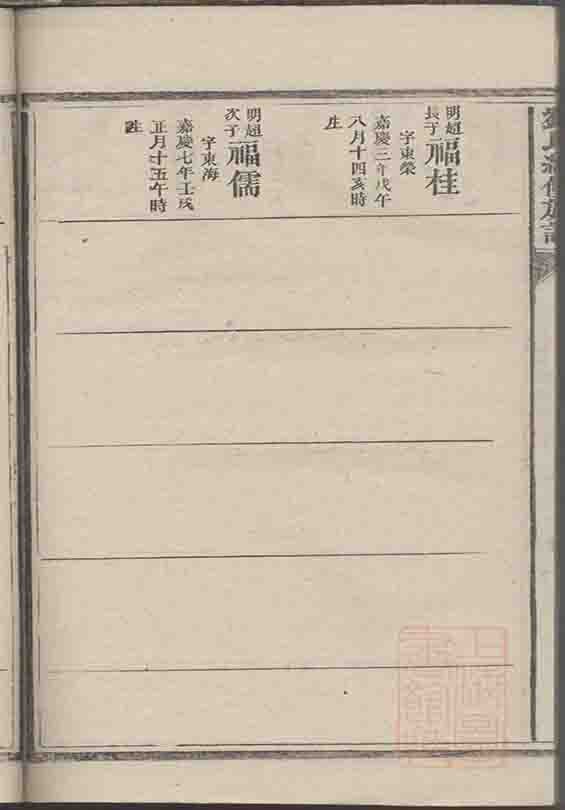 明超
長子
福桂
字東榮
嘉慶三年戊午
八月十四亥時
生
明超
次子
福儒
字東海
嘉慶七年壬戌
正月十五午時
生